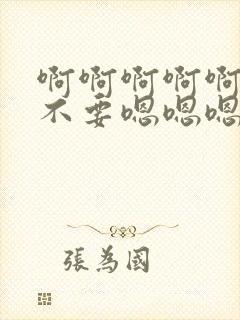 啊啊啊啊啊
不要嗯嗯嗯
張為國